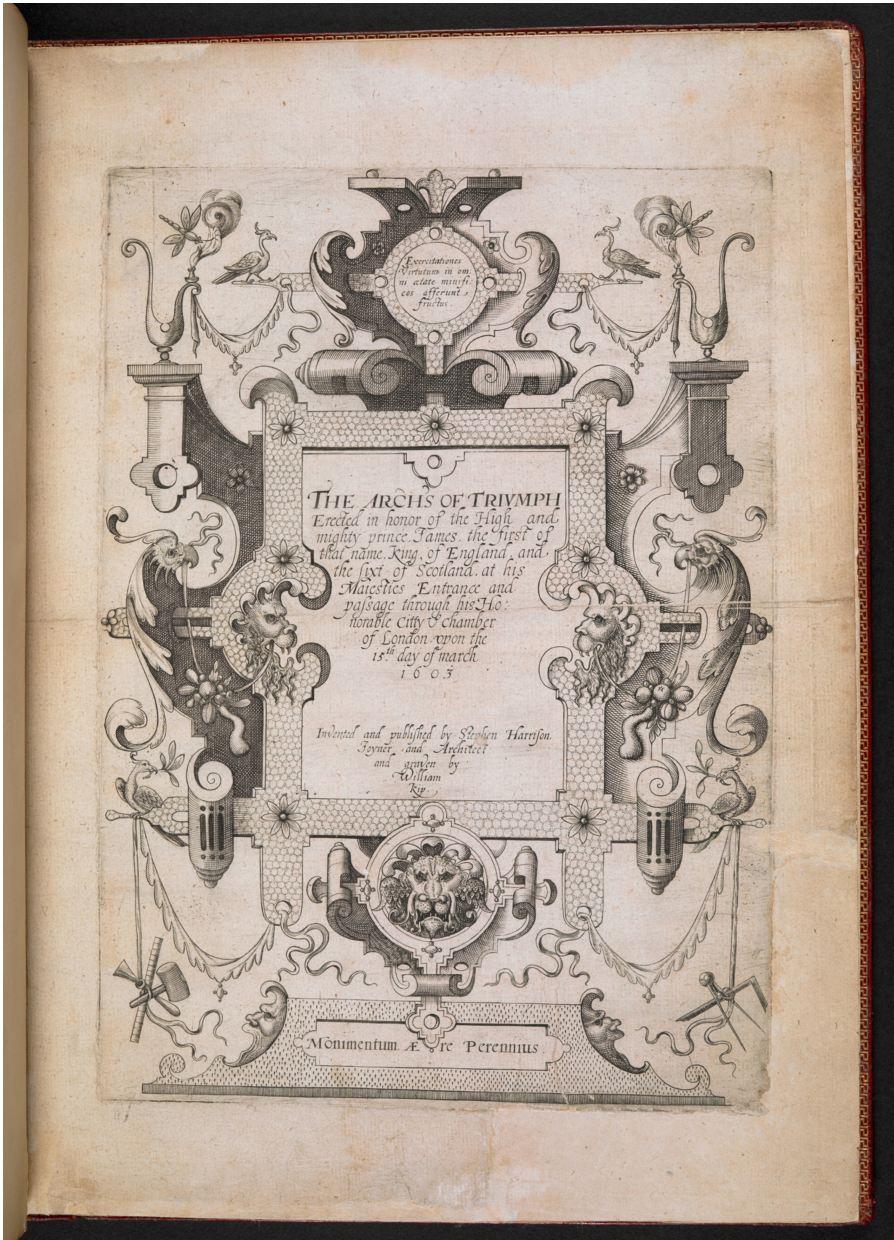 Exercitationes
Virtutum in om
ni ætate minifi:
cos afferunt
fructus.
THE ARCHS OF TRIVMPH
Erected in honor of the High and
mighty prince. Iames. the first of
that name. King, of England. and
the sixt of Scotland. at his
Maiesties Entrance and
passage through his Ho:
norable Citty & chamber
of London vpon the
15th day of march
1603
Invented and published by Stephen Harrison
Joyner and Architect
and graven by
William
Kip.
Monimentum. Æ re Perennius.